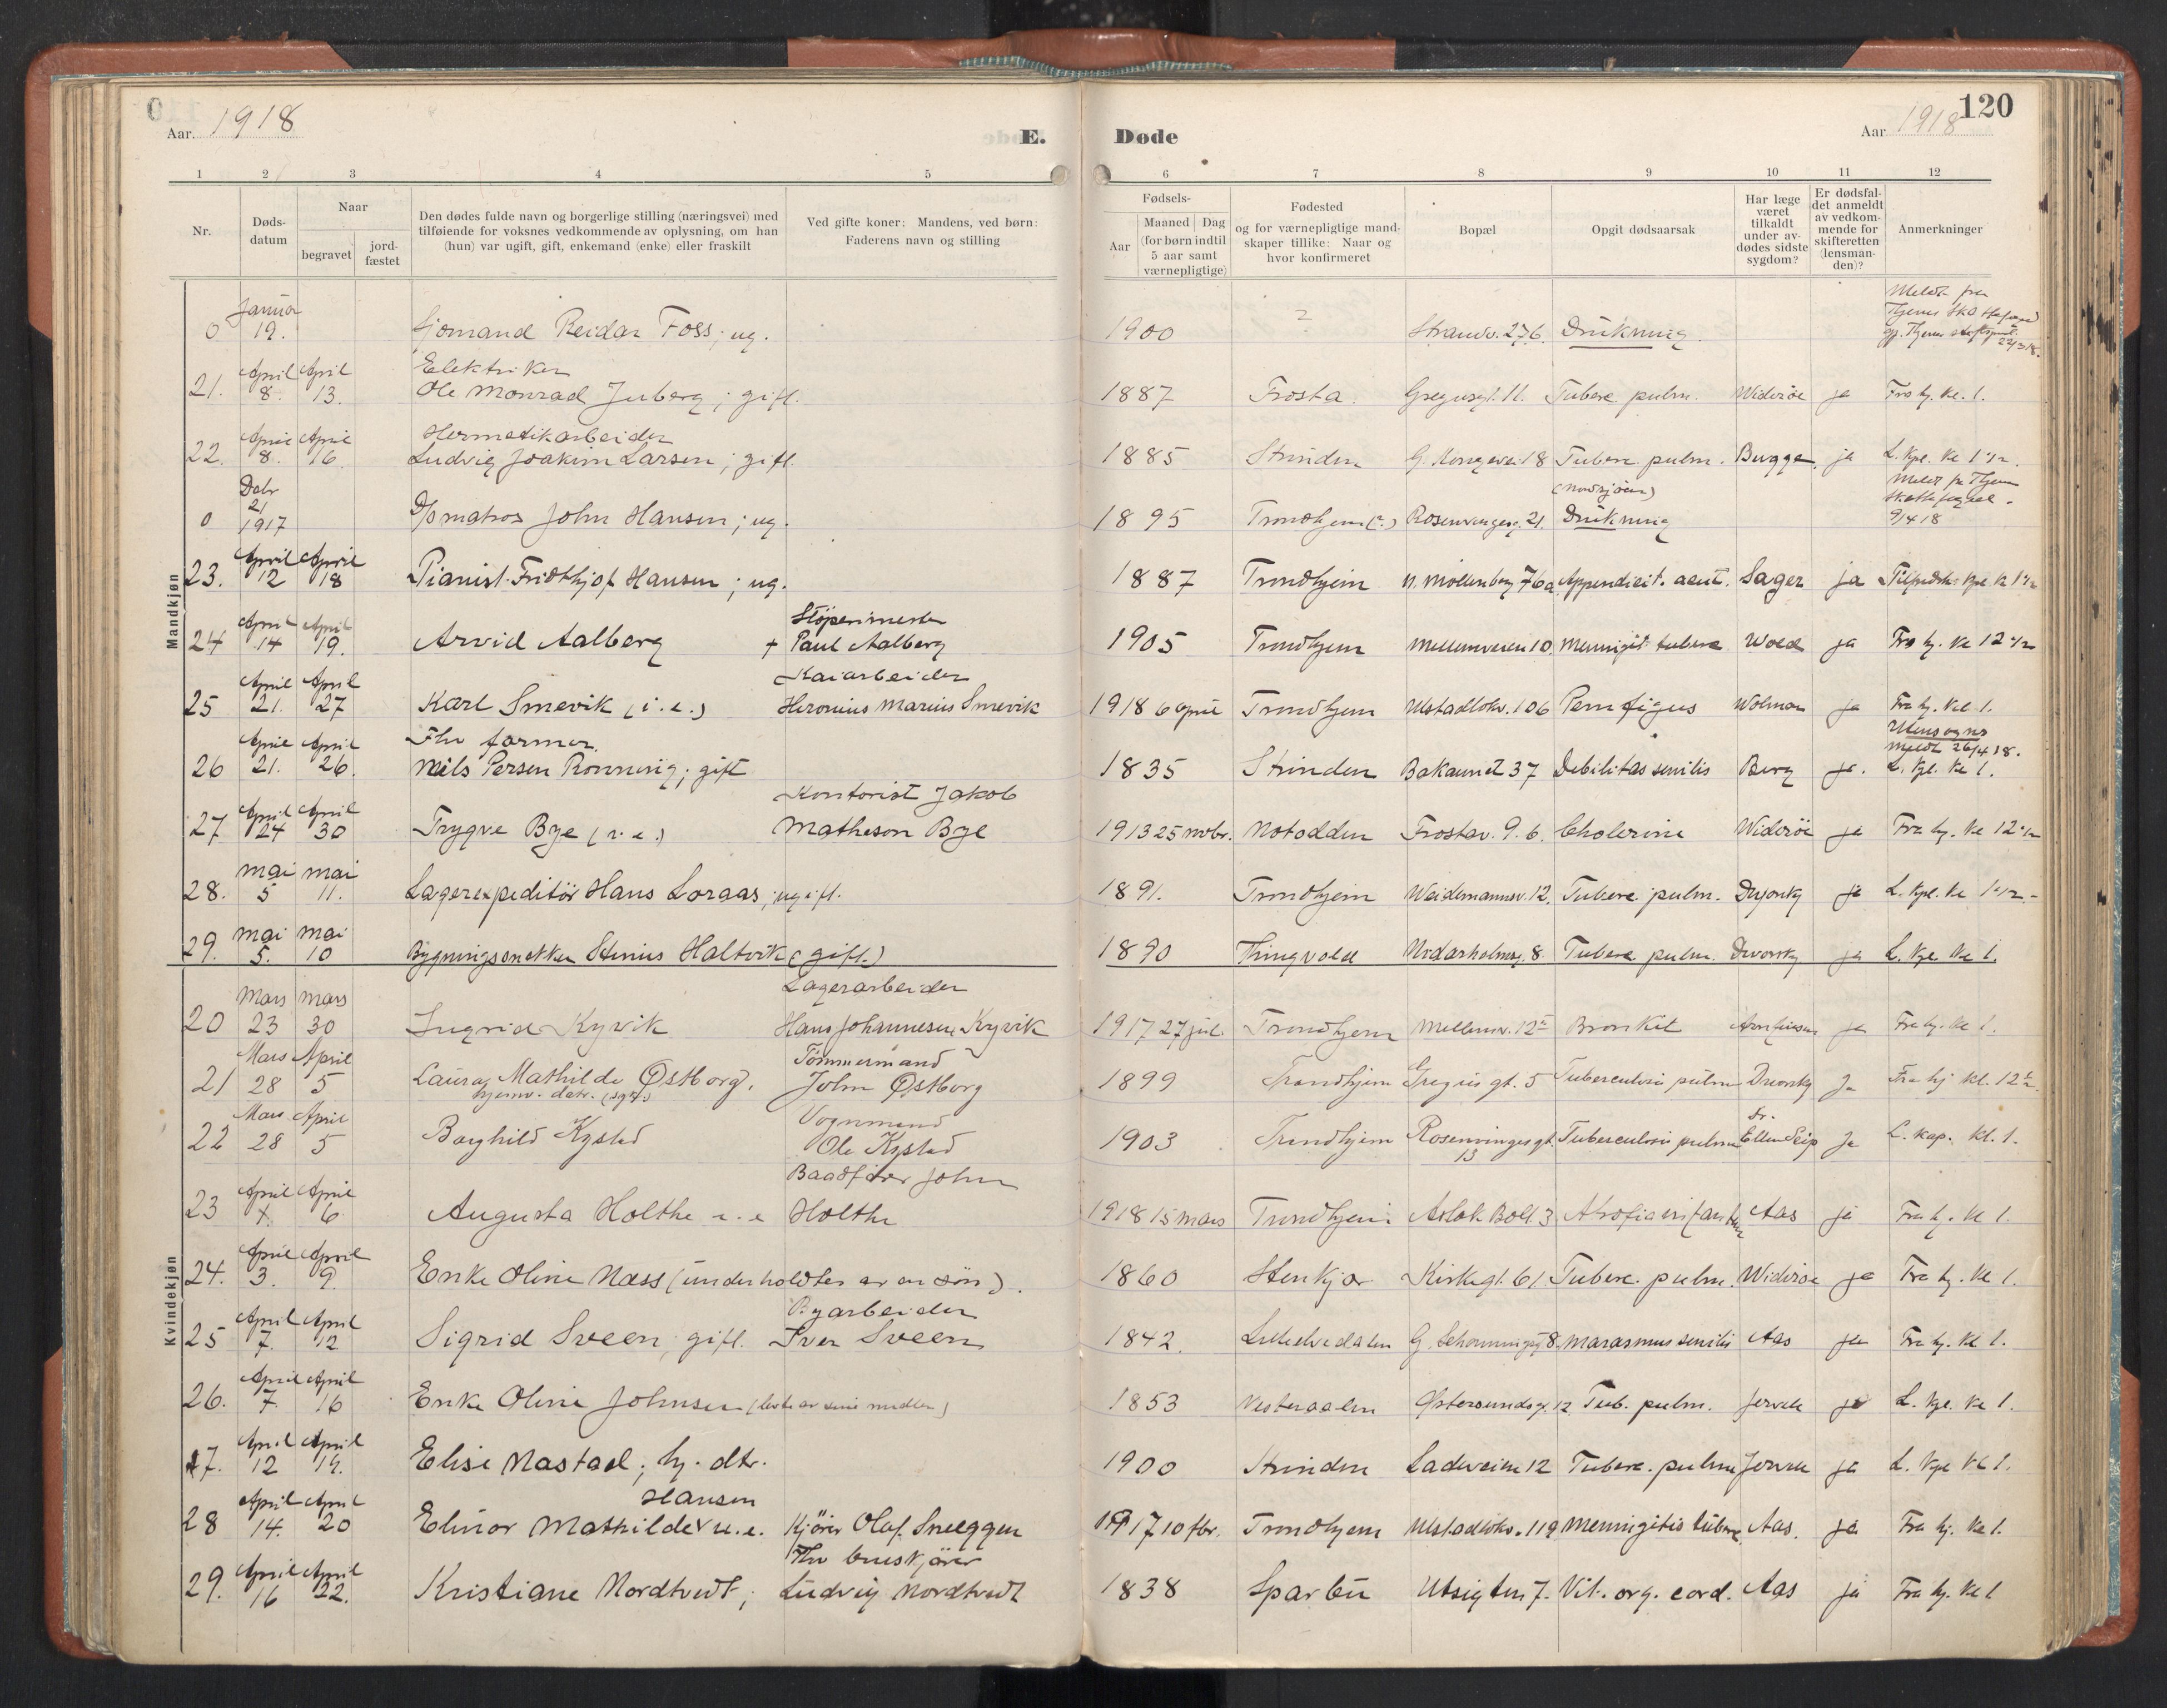 Aar. 1918
E.
Døde
Aar 1918
120
1 2 3 4 5 6 7 8 9 10 11 12
Nr.
Døds-
datum
Naar
begravet
jord-
fæstet
Den dødes fulde navn og borgerlige stilling (næringsvei) med
tilføiende for voksnes vedkommende av oplysning, om han
(hun) var ugift, gift, enkemand (enke) eller fraskilt
Ved gifte koner: Mandens, ved børn:
Faderens navn og stilling
Fødsels-
Aar
Maaned Dag
(for børn indtil
5 aar samt
værnepligtige)
Fødested
og for værnepligtige mand-
skaper tillike: Naar og
hvor konfirmeret
Bopæl
Opgit dødsaarsak
Har læge
været
tilkaldt
under av-
dødes sidste
sygdom?
Er dødsfal-
det anmeldt
av vedkom-
mende for
skifteretten
(lensman-
den)?
Anmerkninger
Mandkjøn
Januar Meldt fra
0 19. Sjømand Reidar Foss; ug. 1900 ? Strandv. 27 6. Drukning
22/3 18.
April April Elektriker
21. 8. 13. Ole Monrad Juberg; gift. 1887 Frosta. Gregusgt. 11. Tuberc. pulm. Widerøe ja Fra hj. kl. 1.
April April Hermetikarbeider
22. 8. 16. Ludvig Joakim Larsen; gift. 1885 Strinden G. Kongevei 18 Tuberc. pulm. Bugge. ja L. kpl. kl 1 1/2.
Debr (Nordsjøen) Meldt fr Thjem
21
0 1917 D/s matros John Hansen; ug. 1895 Trondhjem (?) Rosenvingesg. 21. Drukning 9/4 18
April April
23. 12 18 Pianist Fridthjof Hansen; ug. 1887 Trondhjem N. Møllenberg 76a Appendicit. acut. Sager ja kpl. kl 1 1/2
April April Støperimester
24 14 19. Arvid Aalberg + Paul Aalberg 1905 Trondhjem Mellemveien 10 Meningit tuberc Wold ja Fra hj. kl 12 1/2
April April Kaiarbeider
25 21. 27 Karl Smevik (i.e.) Heronius Marius Smevik 1918 6 april Trondhjem Ulstadløkv. 106 Pemfigus Wolman ja Fra hj. kl 1.
April April Fhv farmer. Utensogns meldt 26/4 18.
26 21. 26. Nils Persen Rønning; gift 1835 Strinden Bakaunet 37 Debilitas senilis Berg ja. L. kpl. kl 1.
April April Kontorist Jakob
27 24 30 Trygve Bye (i.e.) Matheson Bye 1913 25 novbr. Notodden Frostav. 9. 6. Cholerine Widerøe ja Fra hj. kl 12 1/2
mai mai
28. 5 11. Lagerexpeditør Hans Loraas; ugift. 1891. Trondhjem Weidemannsv. 12. Tuberc. pulm. ja L. kpl. kl 1 1/2.
mai mai
29. 5. 10 Bygningssnekker Stenius Haltvik (gift.) 1890 Thingvold Nidarholmsg. 8 Tuberc. pulm. Dworsky ja L. kpl. kl 1.
Kvindekjøn
mars mars Lagerarbeider
20 23 30 Ingrid Kyvik Hans Johannesen Kyvik 1917 27 jul. Trondhjem Mellemv. 12 Bronkit ja Fra hj. kl 1.
Mars April Tømmermand
21 28 5 Laura Mathilde Østborg. John Østborg 1899 Trondhjem Gregus gt. 5 Tuberculosis pulm Dworsky Ja Fra hj kl. 12 1/2.
hjemv. datr. (syk.)
Mars April Vognmand Dr.
22 28 5 Borghild Kystad Ole Kystad 1903 Trondhjem Rosenvinges gt. 13 Tuberculosis pulm Ellen Seip Ja L. kap. kl. 1.
April April Baadfører John
23 1. 6 Augusta Holthe i.e Holthe 1918 15 mars Trondhjem Aslak Bolt. 3 Atrofia infantum Aas ja Fra hj. kl 1.
April April
24. 3. 9. Enke Oline Næss (underholdtes av en søn). 1860 Stenkjær Kirkegt. 61 Tuberc. pulm. Widerøe ja Fra hj. kl 1.
April April Byarbeider
25 7. 12 Sigrid Sveen; gift. Iver Sveen 1842. Lilleelvedalen G. Schønningsg 8. Marasmus senilis Aas ja Fra hj. kl 1.
April April
26. 7. 16 Enke Oline Johnsen (levte av sine midler) 1853 Vesteraalen Østersundsg. 12. Tub. pulm. Jervell ja L. kpl. kl 1.
April April
27. 12 19. Elise Nastad; hj. dtr. 1900 Strinden Ladeveien 12 Tuberc. pulm Jervell ja L. kpl kl 1.
April April Hansen
28 14. 20 Elinor Mathilde u.e. Kjører Olaf Sneeggen 1917 10 fbr. Trondhjem Ulstadløkv. 119 Meningitis tuberc. Aas. ja Fra hj. kl 1.
April April Fhv bruskjører
29. 16 22. Kristiane Nordtvedt; Ludvig Nordtvedt 1838 Sparbu Utsigten 7. Vit. org. cord. Aas ja Fra hj. kl 1